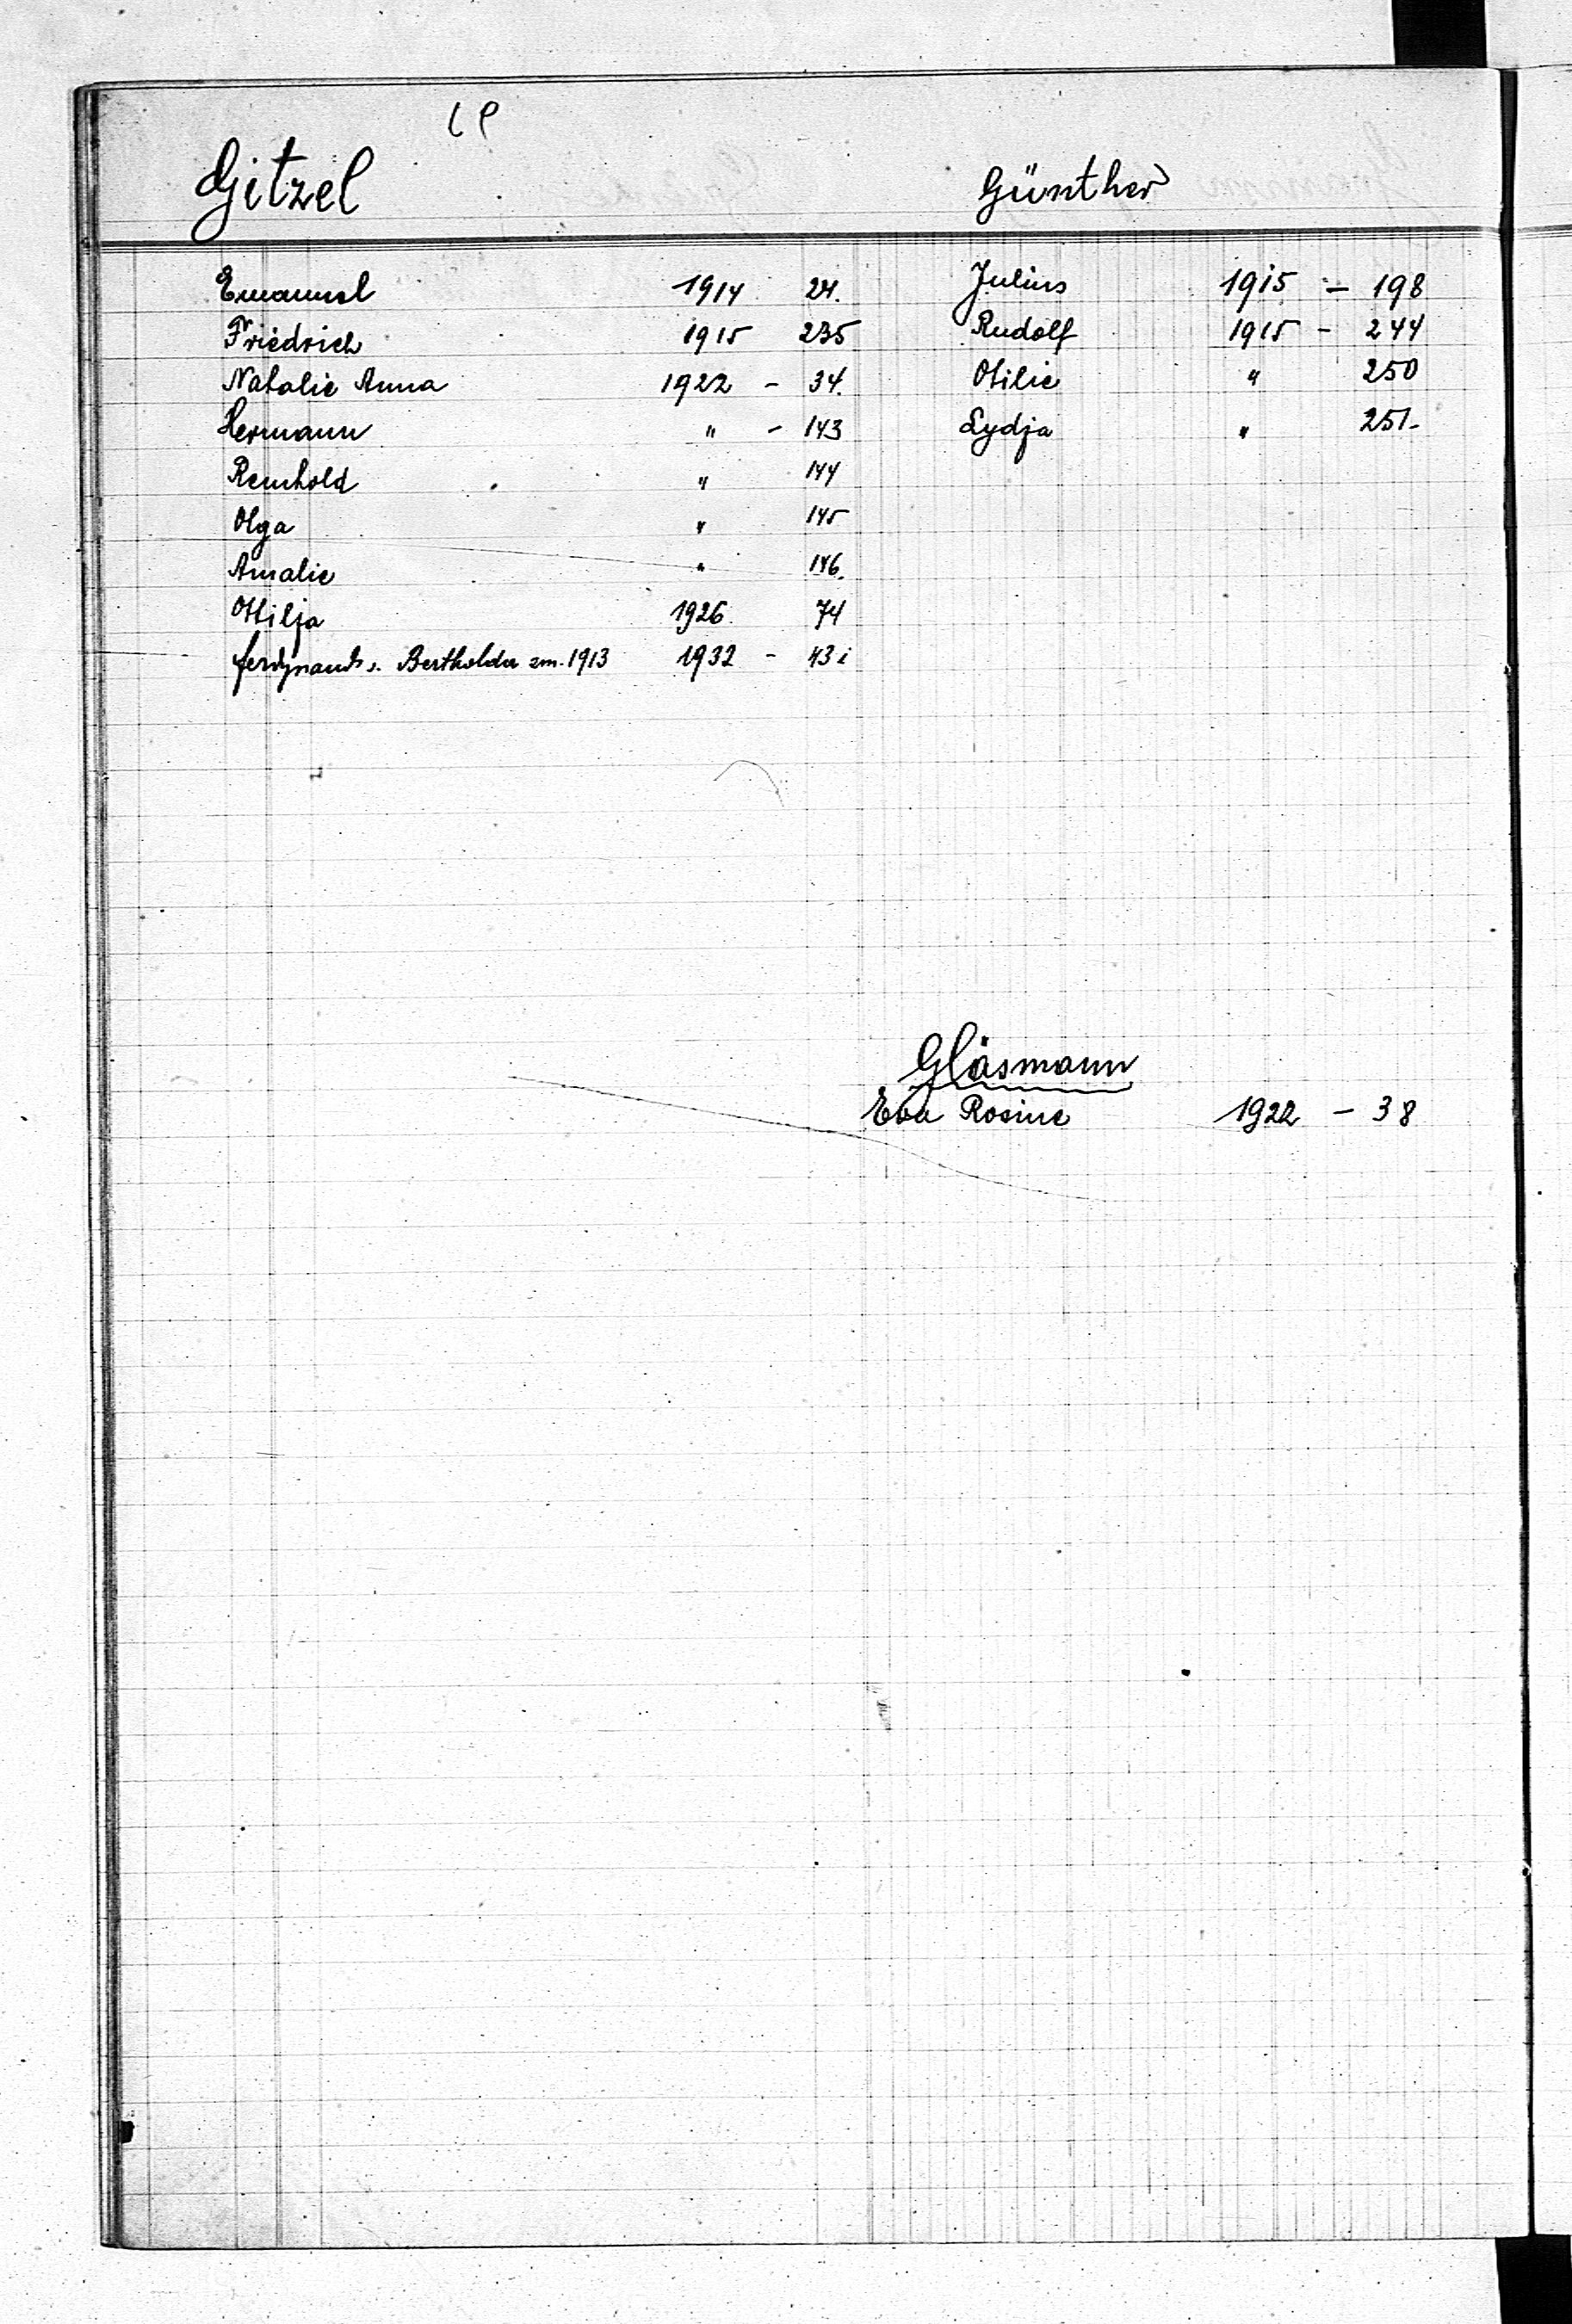 Gitzel
Emanuel 1914 24.
Friedrich 1915 235
Natalie Anna 1922 - 34.
Hermann " - 143
Reinhold " 144
Olga " 145
Amalie " 146.
Ottilja 1926. 74
Ferdynand s. Bertholda zm. 1913 1932 - 43 i
Günther
Julius 1915 - 198
Rudolf 1915 - 244
Otilie " 250
Lydja " 251-
Gläsmann
Eva Rosine 1922 - 38